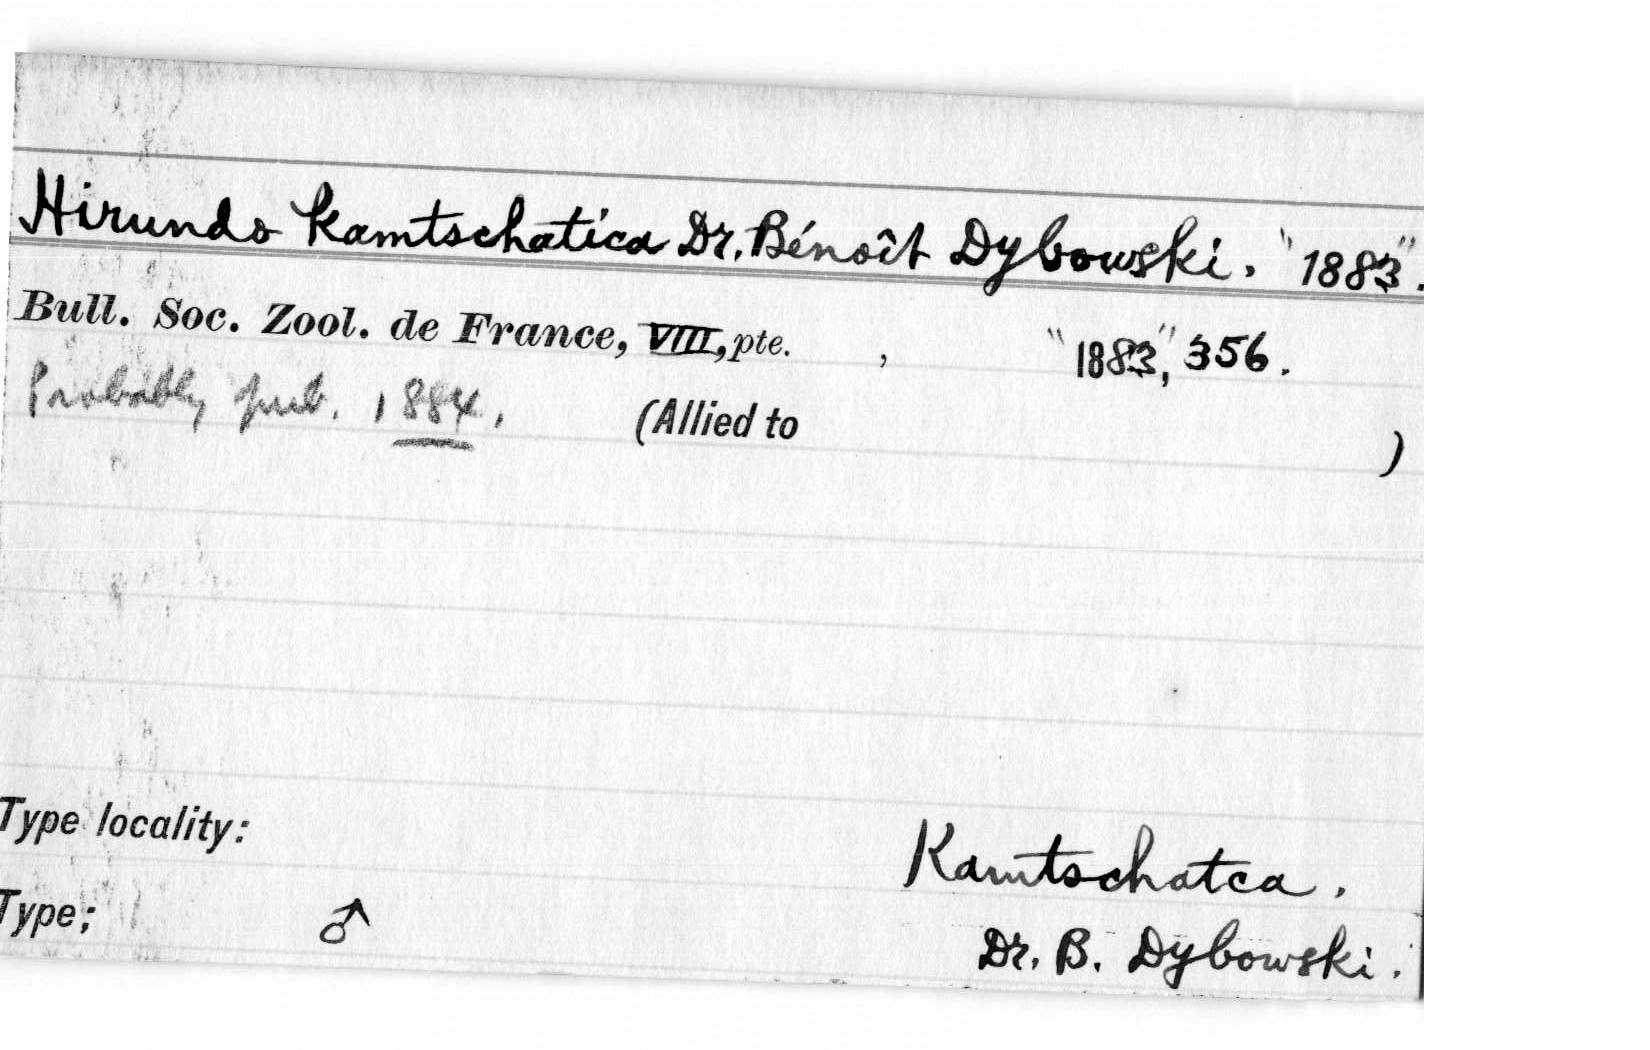 Hirundo Kamtschatica Dr. Bénoît Dybowski. "1883".
Bull. Soc. Zool. de France, VIII, pte. , "1883," 356.
Probably pub. 1884. (Allied to )
Type locality: Kamtschatca.
Type; ♂ Dr. B. Dybowski.